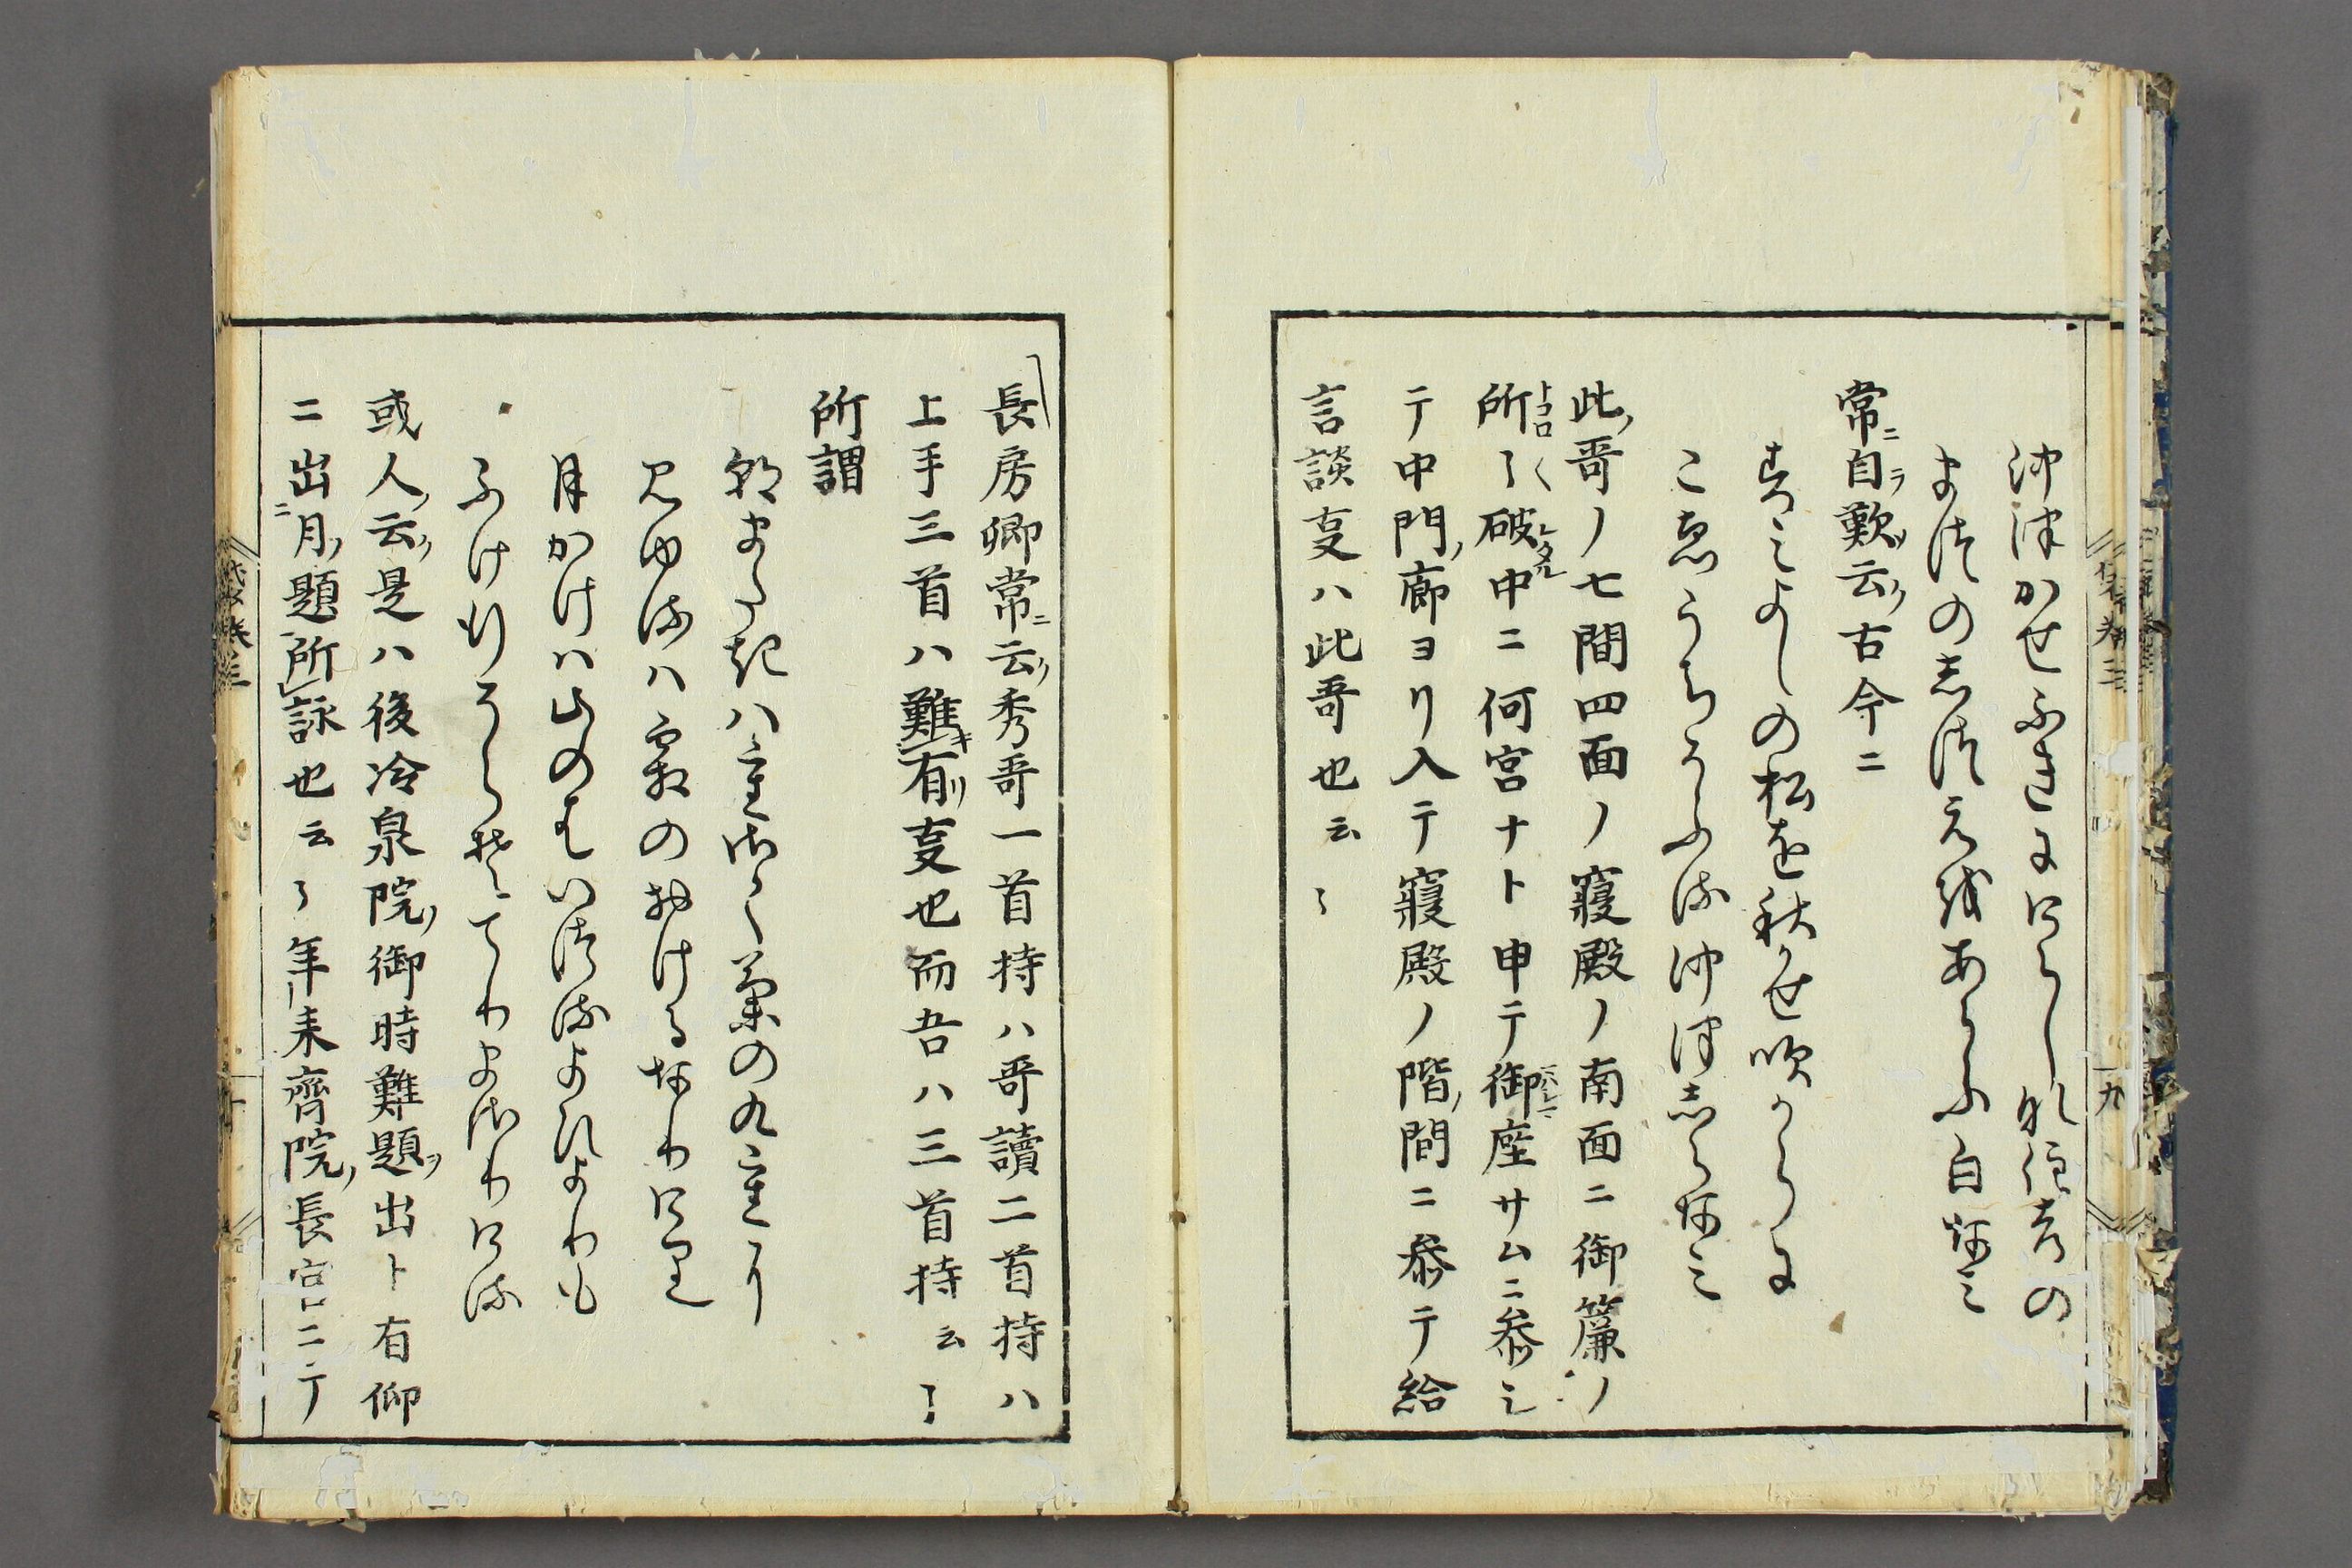 沖津かせふきにけらしな住吉の
まつのしつえをあらふ白なみ
常ニ自ラ歎云ク古今ニ
すみよしの松を秋かせ吹からに
こゑうちそふる沖津しらなみ
此哥ノ七間四面ノ寝殿ノ南面ニ御簾ノ
所トコロ〱破レタル中ニ何宮ナト申テ御座サムニ参シ
テ中門ノ廊ヨリ入テ寝殿ノ階ノ間ニ参テ給
言談叓ハ此哥也云〻
長房卿常ニ云ク秀哥一首持ハ哥讀二首持ハ
上手三首ハ難キ有リ叓也而吾ハ三首持云〻
所謂
朝またき八重さく菊の九重に
見ゆるは霜のおけるなりけり
月かけは山のはいつるよひよりも
ふけ行そらそてりまさりける
或人ノ云ク是ハ後冷泉院ノ御時難題ヲ出ト有仰
ニ出ニ月ノ題所詠也云〻年来齊院ノ長官ニテ
袋草紙巻三
九